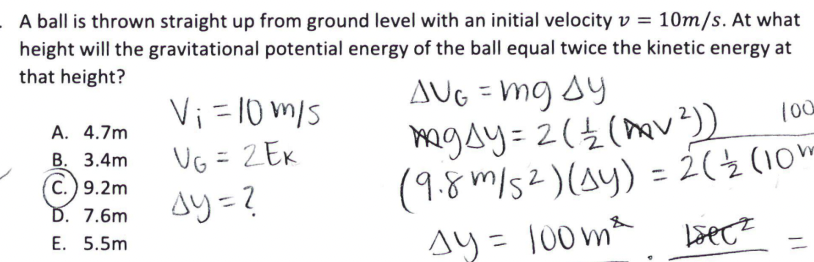 A ball is thrown straight up from ground level with an initial velocity v = 10m/s. At what
height will the gravitational potential energy of the ball equal twice the kinetic energy at
that height?
A. 4.7m
B. 3.4m
C. 9.2m
D. 7.6m
E. 5.5m
Vi = 10 m/s
UG = 2EK
Δy = ?
ΔUG = mg Δy
mgΔy = 2(½(mv²))
100
(9.8 m/s²)(Δy) = 2(½(10m
Δy = 100m² · 1sec² =